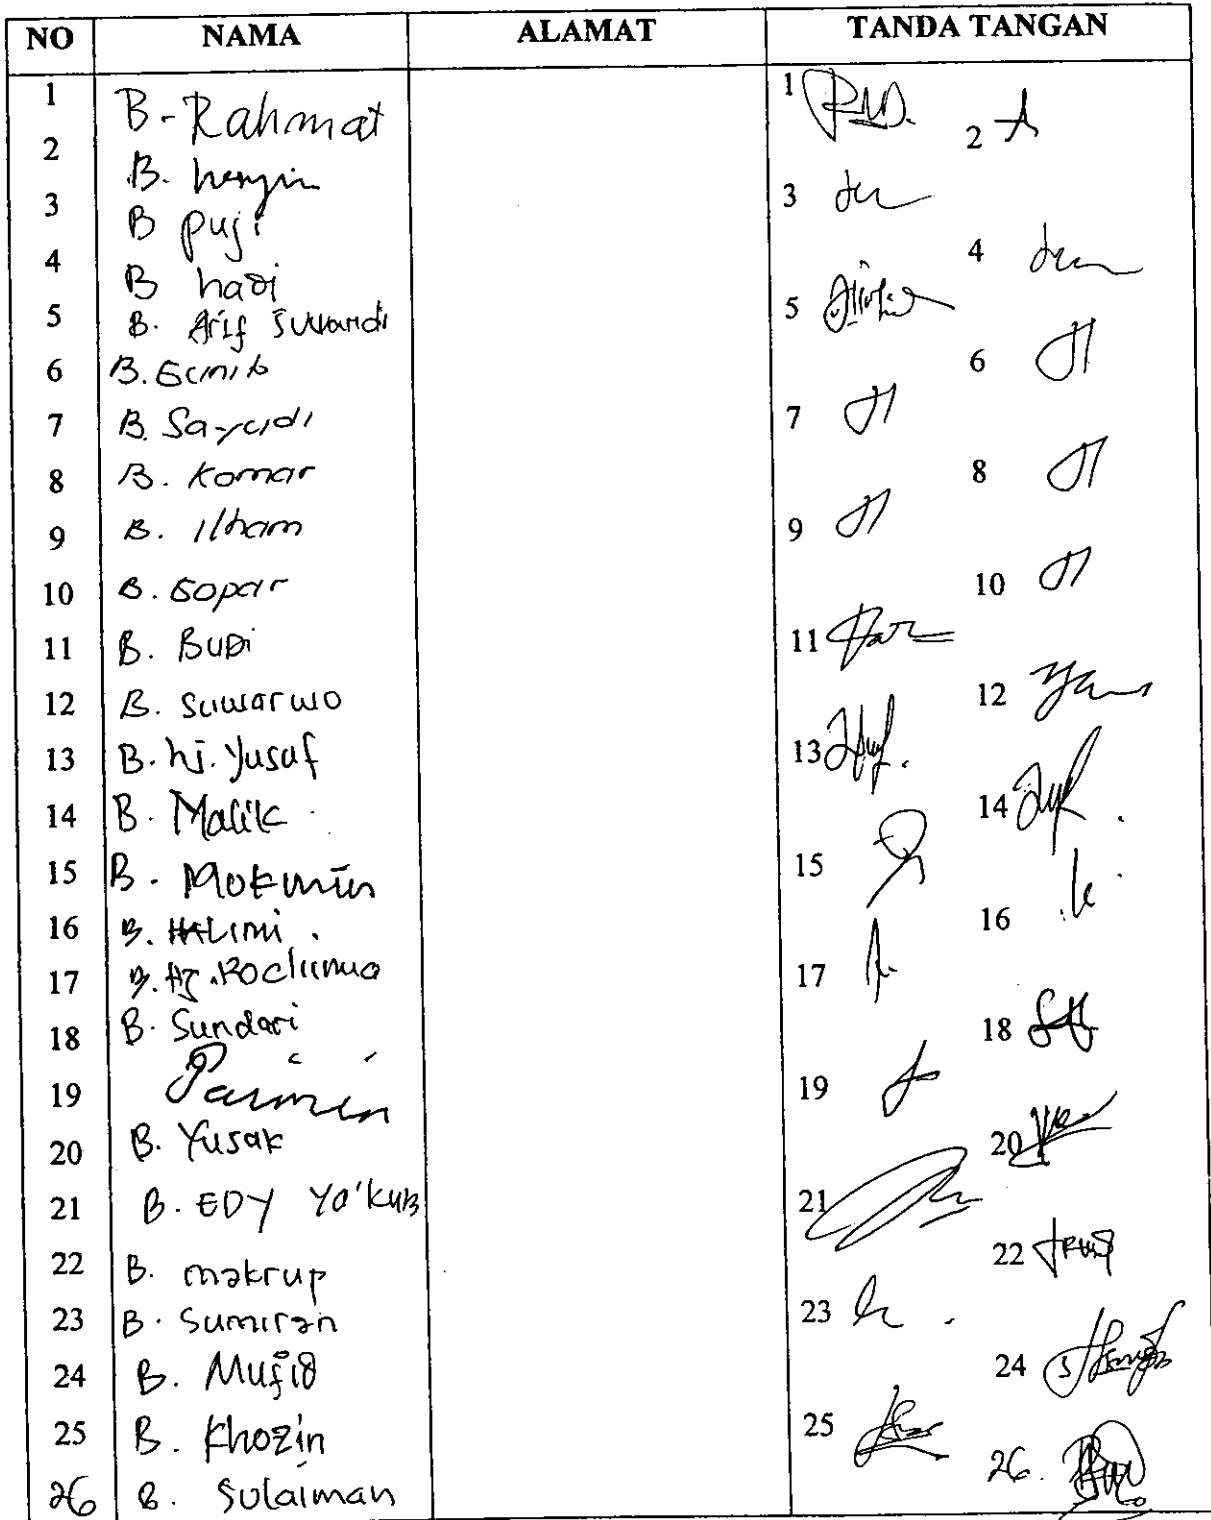 NO NAMA ALAMAT TANDA TANGAN
1 B-Rahmat 1
2 B. 2
3 B puji 3
4 B hadi 4
5 B. Arif Suwandi 5
6 B. 6
7 B. Sayidi 7
8 B. Komar 8
9 B. Ilham 9
10 B. Sopar 10
11 B. BUDi 11
12 B. Suwarwo 12
13 B. hj. Yusuf 13
14 B. Malik 14
15 B. Mokmin 15
16 B. HALimi 16
17 B. Hj. 17
18 B. Sundari 18
19 Paimin 19
20 B. Yusak 20
21 B. EDY YA'KUB 21
22 B. makrup 22
23 B. Sumiran 23
24 B. Mufid 24
25 B. Khozin 25
26 B. Sulaiman 26.